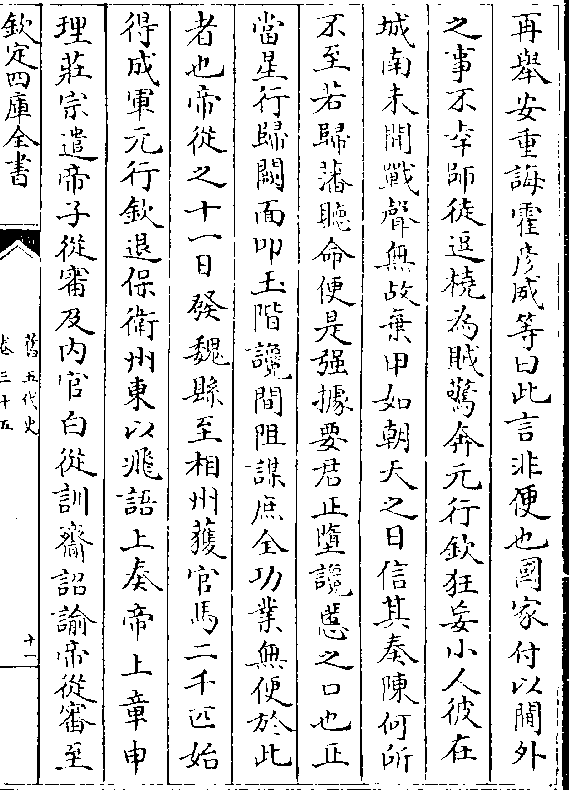 再舉安重誨霍彥威等曰此言非便也國家付以閫外
之事不幸師徒逗橈為賊驚奔元行欽狂妄小人彼在
城南未聞戰聲無故棄甲如朝天之日信其奏陳何所
不至若歸藩聽命便是强據要君正墮讒慝之口也正
當星行歸闕面叩玉階讒間阻謀庶全功業無便於此
者也帝從之十一日發魏縣至相州獲官馬二千匹始
得成軍元行欽退保衛州東以飛語上奏帝上章申
理莊宗遣帝子從審及内官白從訓齎詔諭帝從審至
欽定四庫全書
舊五代史
卷三十五
十一